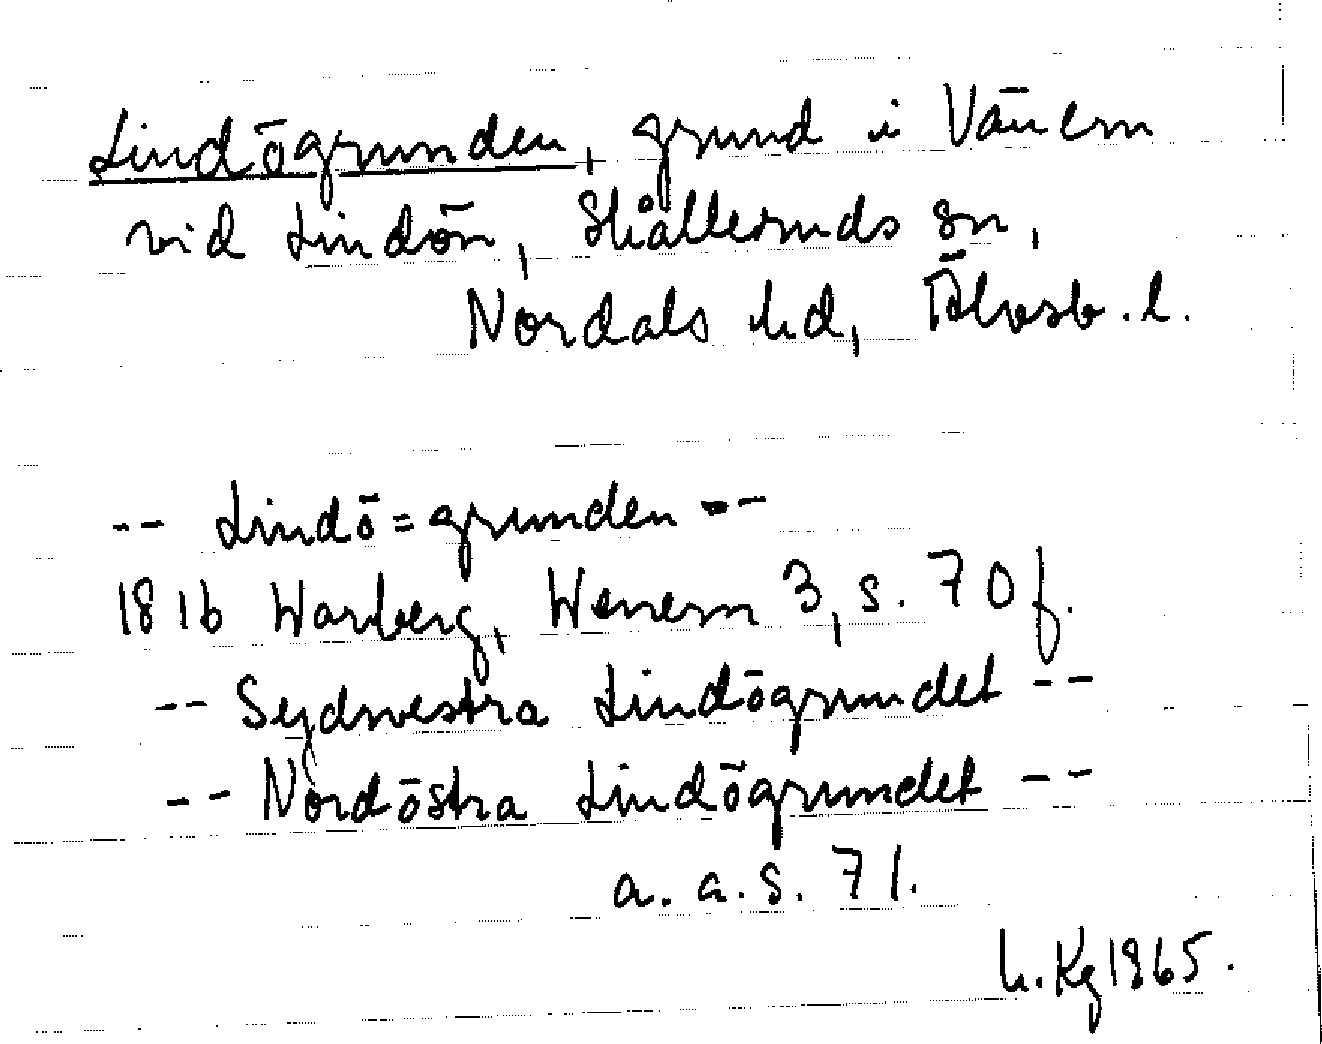 Lindögrunden, grund i Vänern
vid Lindön, Skålleruds sn,
Nordals hd, Älvsb. l.
-- Lindö=grunden --
1816 Warberg, Wenern 3, s. 70 f.
-- Sydwestra Lindögrundet --
-- Nordöstra Lindögrundet --
a. a. s. 71.
h. Kg 1965.